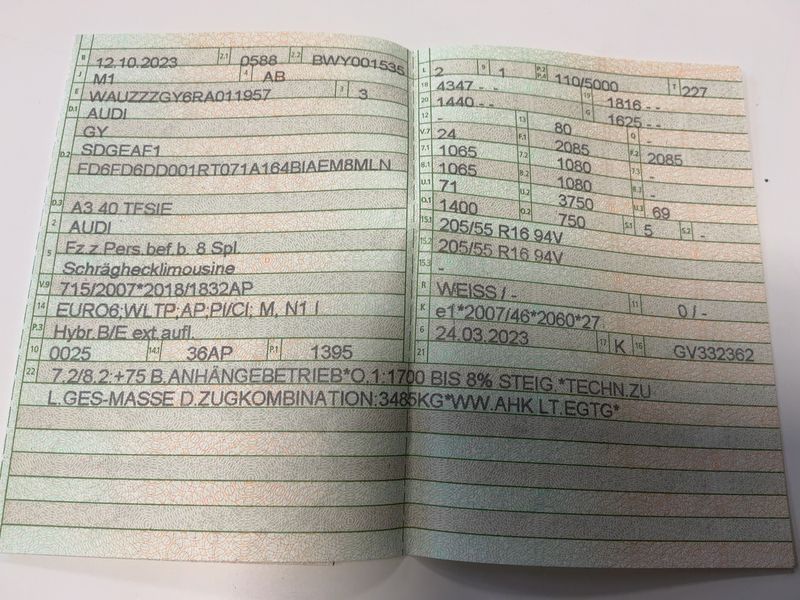 B 12.10.2023 2.1 0588 2.2 BWY001535
J M1 4 AB
E WAUZZZGY6RA011957 3 3
D.1 AUDI
GY
D.2 SDGEAF1
FD6FD6DD001RT071A164BIAEM8MLN
D.3 A3 40 TFSIE
2 AUDI
5 Fz.z.Pers.bef.b. 8 Spl
Schräghecklimousine
V.9 715/2007*2018/1832AP
14 EURO6;WLTP;AP;PI/CI; M, N1 I
P.3 Hybr.B/E ext.aufl.
10 0025 14.1 36AP P.1 1395
L 2 9 1 P.2 P.4 110/5000 T 227
18 4347 - - 19 1816 - -
20 1440 - - G 1625 - -
12 - 13 80 Q -
V.7 24 F.1 2085 F.2 2085
7.1 1065 7.2 1080 7.3 -
8.1 1065 8.2 1080 8.3 -
U.1 71 U.2 3750 U.3 69
O.1 1400 O.2 750 S.1 5 S.2 -
15.1 205/55 R16 94V
15.2 205/55 R16 94V
15.3 -
R WEISS / - 11 0 / -
K e1*2007/46*2060*27
6 24.03.2023 17 K 16 GV332362
21
22 7.2/8.2:+75 B.ANHÄNGEBETRIEB*O.1:1700 BIS 8% STEIG.*TECHN.ZU
L.GES-MASSE D.ZUGKOMBINATION:3485KG*WW.AHK LT.EGTG*